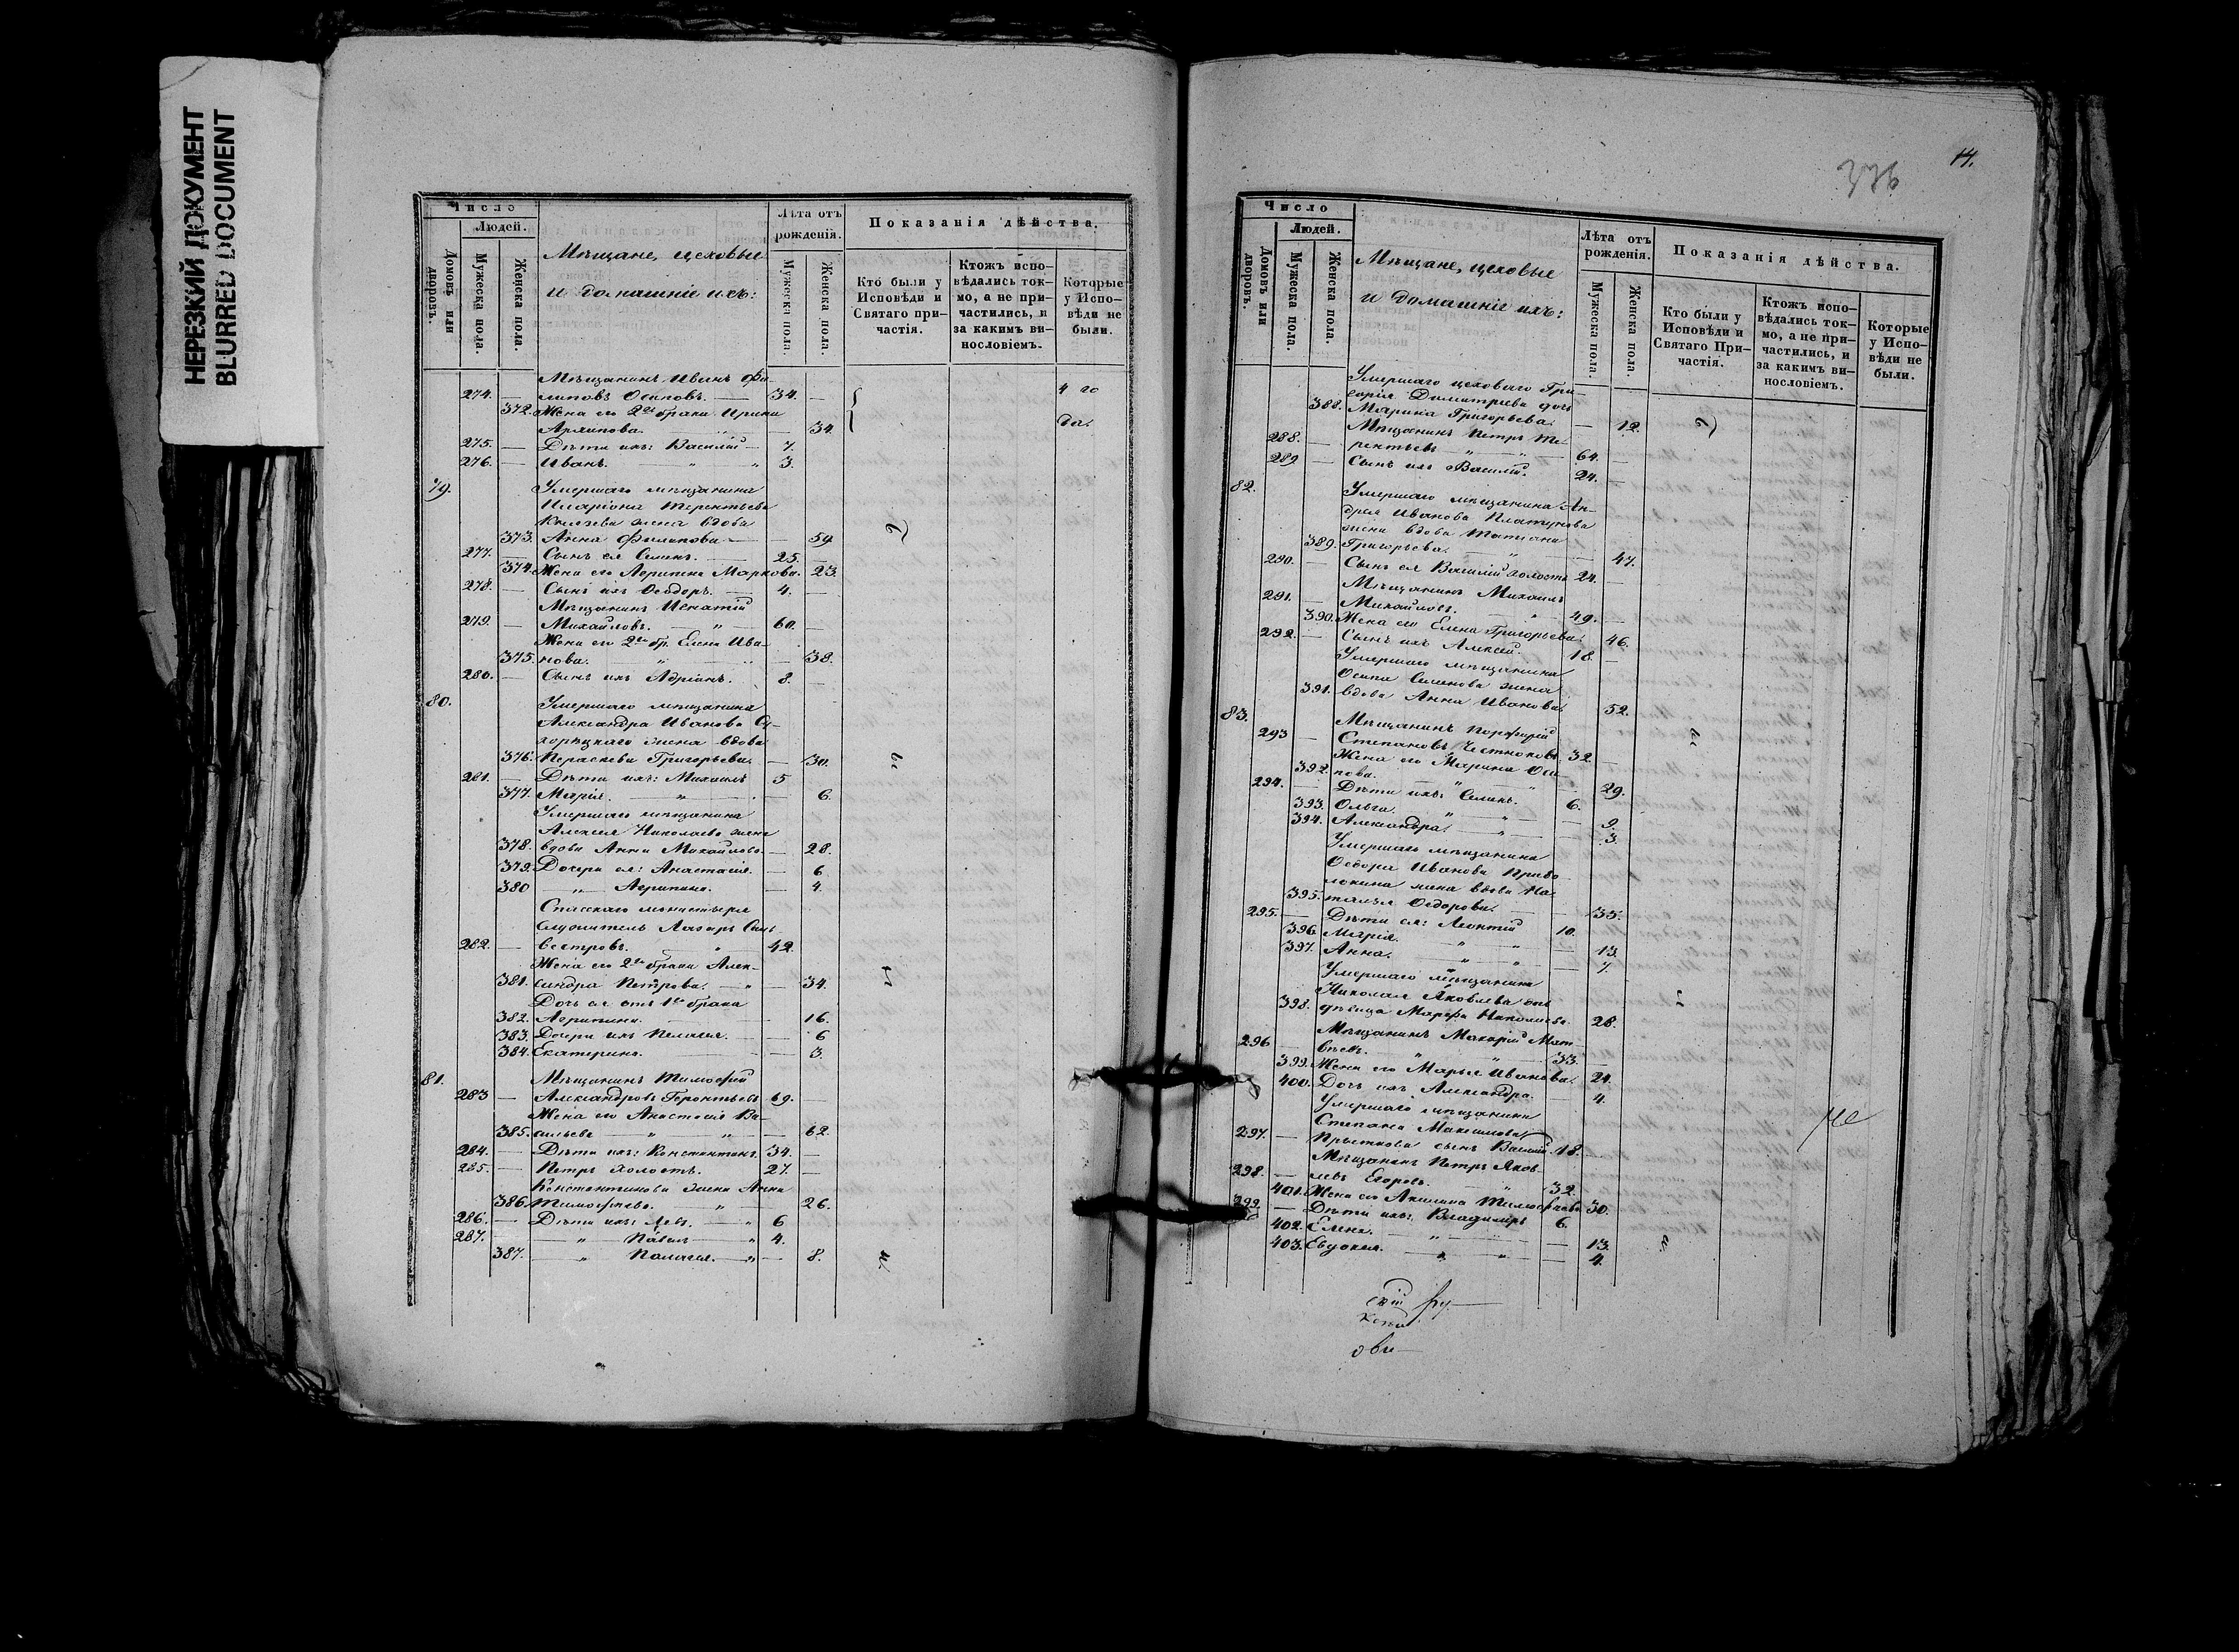 НЕРЕЗКИЙ ДОКУМЕНТ
BLURRED DOCUMENT
Число
Людей.
Домовъ или дворовъ.
Мужеска пола.
Женска пола.
Мѣщане, цеховые
и домашніе ихъ:
Лѣта отъ рожденія.
Мужеска пола.
Женска пола.
Показанія дѣйства.
Кто были у Исповѣди и Святаго причастія.
Ктожъ исповѣдались токмо, а не причастились, и за какимъ винословіемъ.
Которые у Исповѣди не были.
Мѣщанинъ Иванъ Фи-
274. — липовъ Осиповъ. — 34. — 4 го
372. Жена его 2го брака Ирина
Архипова. — 34. да.
275. — Дѣти ихъ: Василій — 7.
276. — Иванъ. — " " 3.
79. Умершаго мѣщанина
Иларіона Терентьева
жена вдова
373. Анна Филипова — — 59.
277. — Сынъ ея Семенъ. — 25. —
374. Жена его Агрипина Маркова. 23.
278. — Сынъ ихъ Ѳеодоръ. — 4. —
Мѣщанинъ Игнатій
279. — Михайловъ. — " — 60. —
Жена его 2го бр. Елена Ива-
375. нова. " " — 38.
280. — Сынъ ихъ Адріанъ. 8. —
80. Умершаго мѣщанина
Александра Иванова
жена вдова
376. Параскева Григорьева. — 30.
281. — Дѣти ихъ: Михаилъ 5
377. Марія. — " — 6.
Умершаго мѣщанина
Алексея Николаева жена
378. вдова Анна Михайлова — 28.
379. Дочери ея: Анастасія. — 6.
380 — " — Агрипина. — 4.
Спасскаго монастыря
служитель Лазарь Силь
282. — вестровъ. " 42.
Жена его 2го брака Алек-
381. сандра Петрова. — " — 34.
Дочь ея отъ 1го брака
382. Агрипина. — 16.
383. Дочери ихъ Пелагея. — 6
384. Екатерина. — 3.
81. Мѣщанинъ Тимофей
283 — Александровъ Геронтьевъ 69. —
Жена его Анастасія Ва-
385. сильева — " — " — 62.
284. — Дѣти ихъ: Константинъ. 34. —
285. — Петръ холостъ. 27. —
Константинова жена Анна
386. Тимофеева. — " — 26.
286. — Дѣти ихъ: Левъ. — " 6
287. — " — Павелъ — " 4.
387. — " — Пелагея. — " — 8.
376
14.
Число
Людей.
Домовъ или дворовъ.
Мужеска пола.
Женска пола.
Мѣщане, цеховые
и домашніе ихъ:
Лѣта отъ рожденія.
Мужеска пола.
Женска пола.
Показанія дѣйства.
Кто были у Исповѣди и Святаго Причастія.
Ктожъ исповѣдались токмо, а не причастились, и за какимъ винословіемъ.
Которые у Исповѣди не были.
Умершаго цеховаго Гри-
горія Димитріева дочь
388. Марина Григорьева. — 12.
Мѣщанинъ Петръ Те-
288. — рентьевъ " " — 64. —
289 — Сынъ его Василій. 24. —
82. Умершаго мѣщанина Ан-
дрея Иванова Платунова
жена вдова Татіана
389. Григорьева. — " — 47.
290. — Сынъ ея Василій холостъ 24. —
Мѣщанинъ Михаилъ
291. — Михайловъ. " 49. —
390. Жена его Елена Григорьева. 46.
292. — Сынъ ихъ Алексей. 18. —
Умершаго мѣщанина
Осипа Семенова жена
391. вдова Анна Иванова. 52.
83. Мѣщанинъ Порфирій
293 — Степановъ Честноковъ. 32. —
Жена его Марина Оси
392. пова. — " — 29.
294. — Дѣти ихъ: Семенъ. 6.
393. Ольга. " " — 9.
394. Александра. — " — 3.
Умершаго мѣщанина
Ѳедора Иванова
жена вдова На-
395. талья Ѳедорова. — 33.
295. — Дѣти ея: Леонтій 10.
396. Марія. " " — 13.
397. Анна. " " — 7.
Умершаго мѣщанина
Николая Яковлева дочь
398. дѣвица Марфа Николаева. 28.
Мѣщанинъ Макарій Мат-
296 — вѣевъ. " " — 33. —
399. Жена его Марья Иванова. 24.
400. Дочь ихъ Александра. — 4.
Умершаго мѣщанина
Степана Максимова
297. — сынъ Василій. 18. —
Мѣщанинъ Петръ Яков
298. — левъ Егоровъ. — " 32.
401. Жена его Акилина Тимофеева 30.
299. — Дѣти ихъ: Владимиръ 6.
402. Елена. — " — 13.
403. Евдокия. — " " — 4.